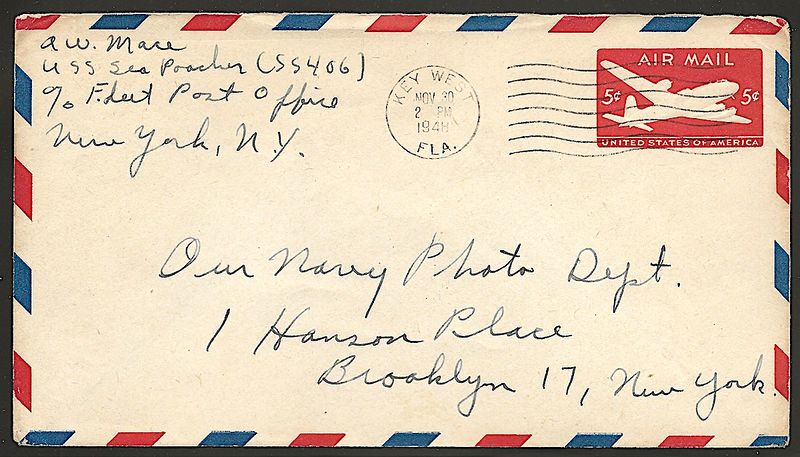 A.W. Mace
USS Sea Poacher (SS406)
c/o Fleet Post Office
New York, N.Y.
KEY WEST
NOV 30
2 PM
1948
FLA.
AIR MAIL
5¢ 5¢
UNITED STATES OF AMERICA
Our Navy Photo Dept.
1 Hanson Place
Brooklyn 17, New York.